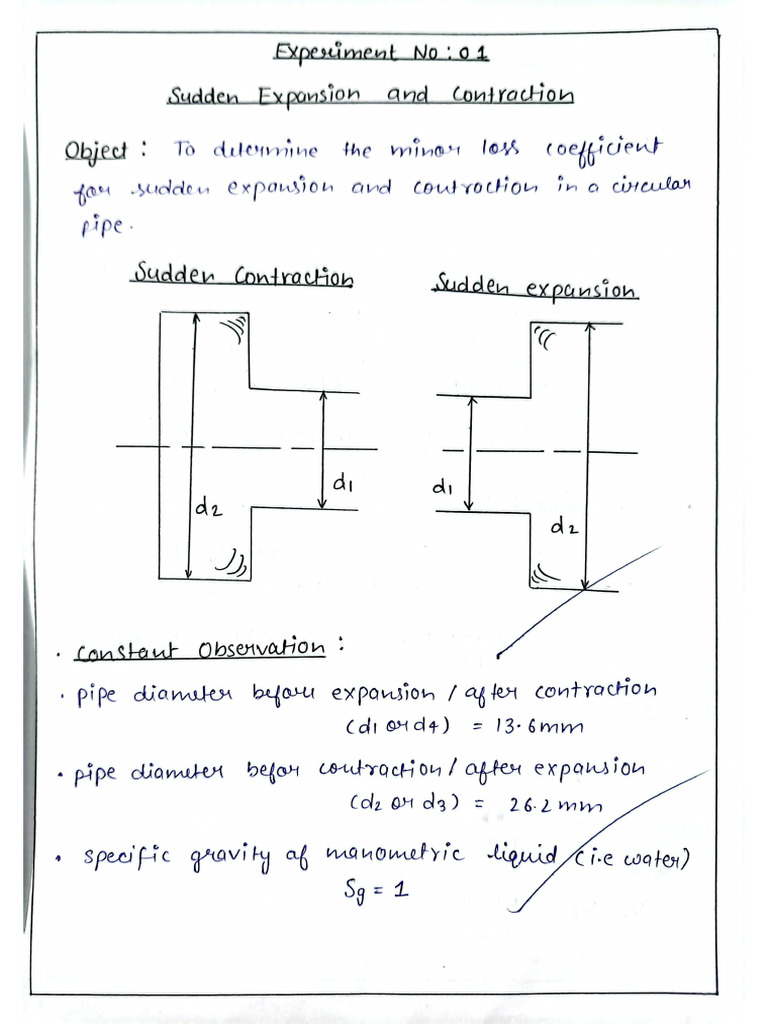 Experiment No : 01
Sudden Expansion and Contraction
Object : To determine the minor loss coefficient
for sudden expansion and contraction in a circular
pipe.
Sudden Contraction
Sudden expansion
d1
d2
d1
d2
. Constant Observation :
. pipe diameter before expansion / after contraction
(d1 or d4) = 13.6mm
. pipe diameter befor contraction / after expansion
(d2 or d3) = 26.2 mm
. specific gravity of manometric liquid (i.e water)
Sg = 1